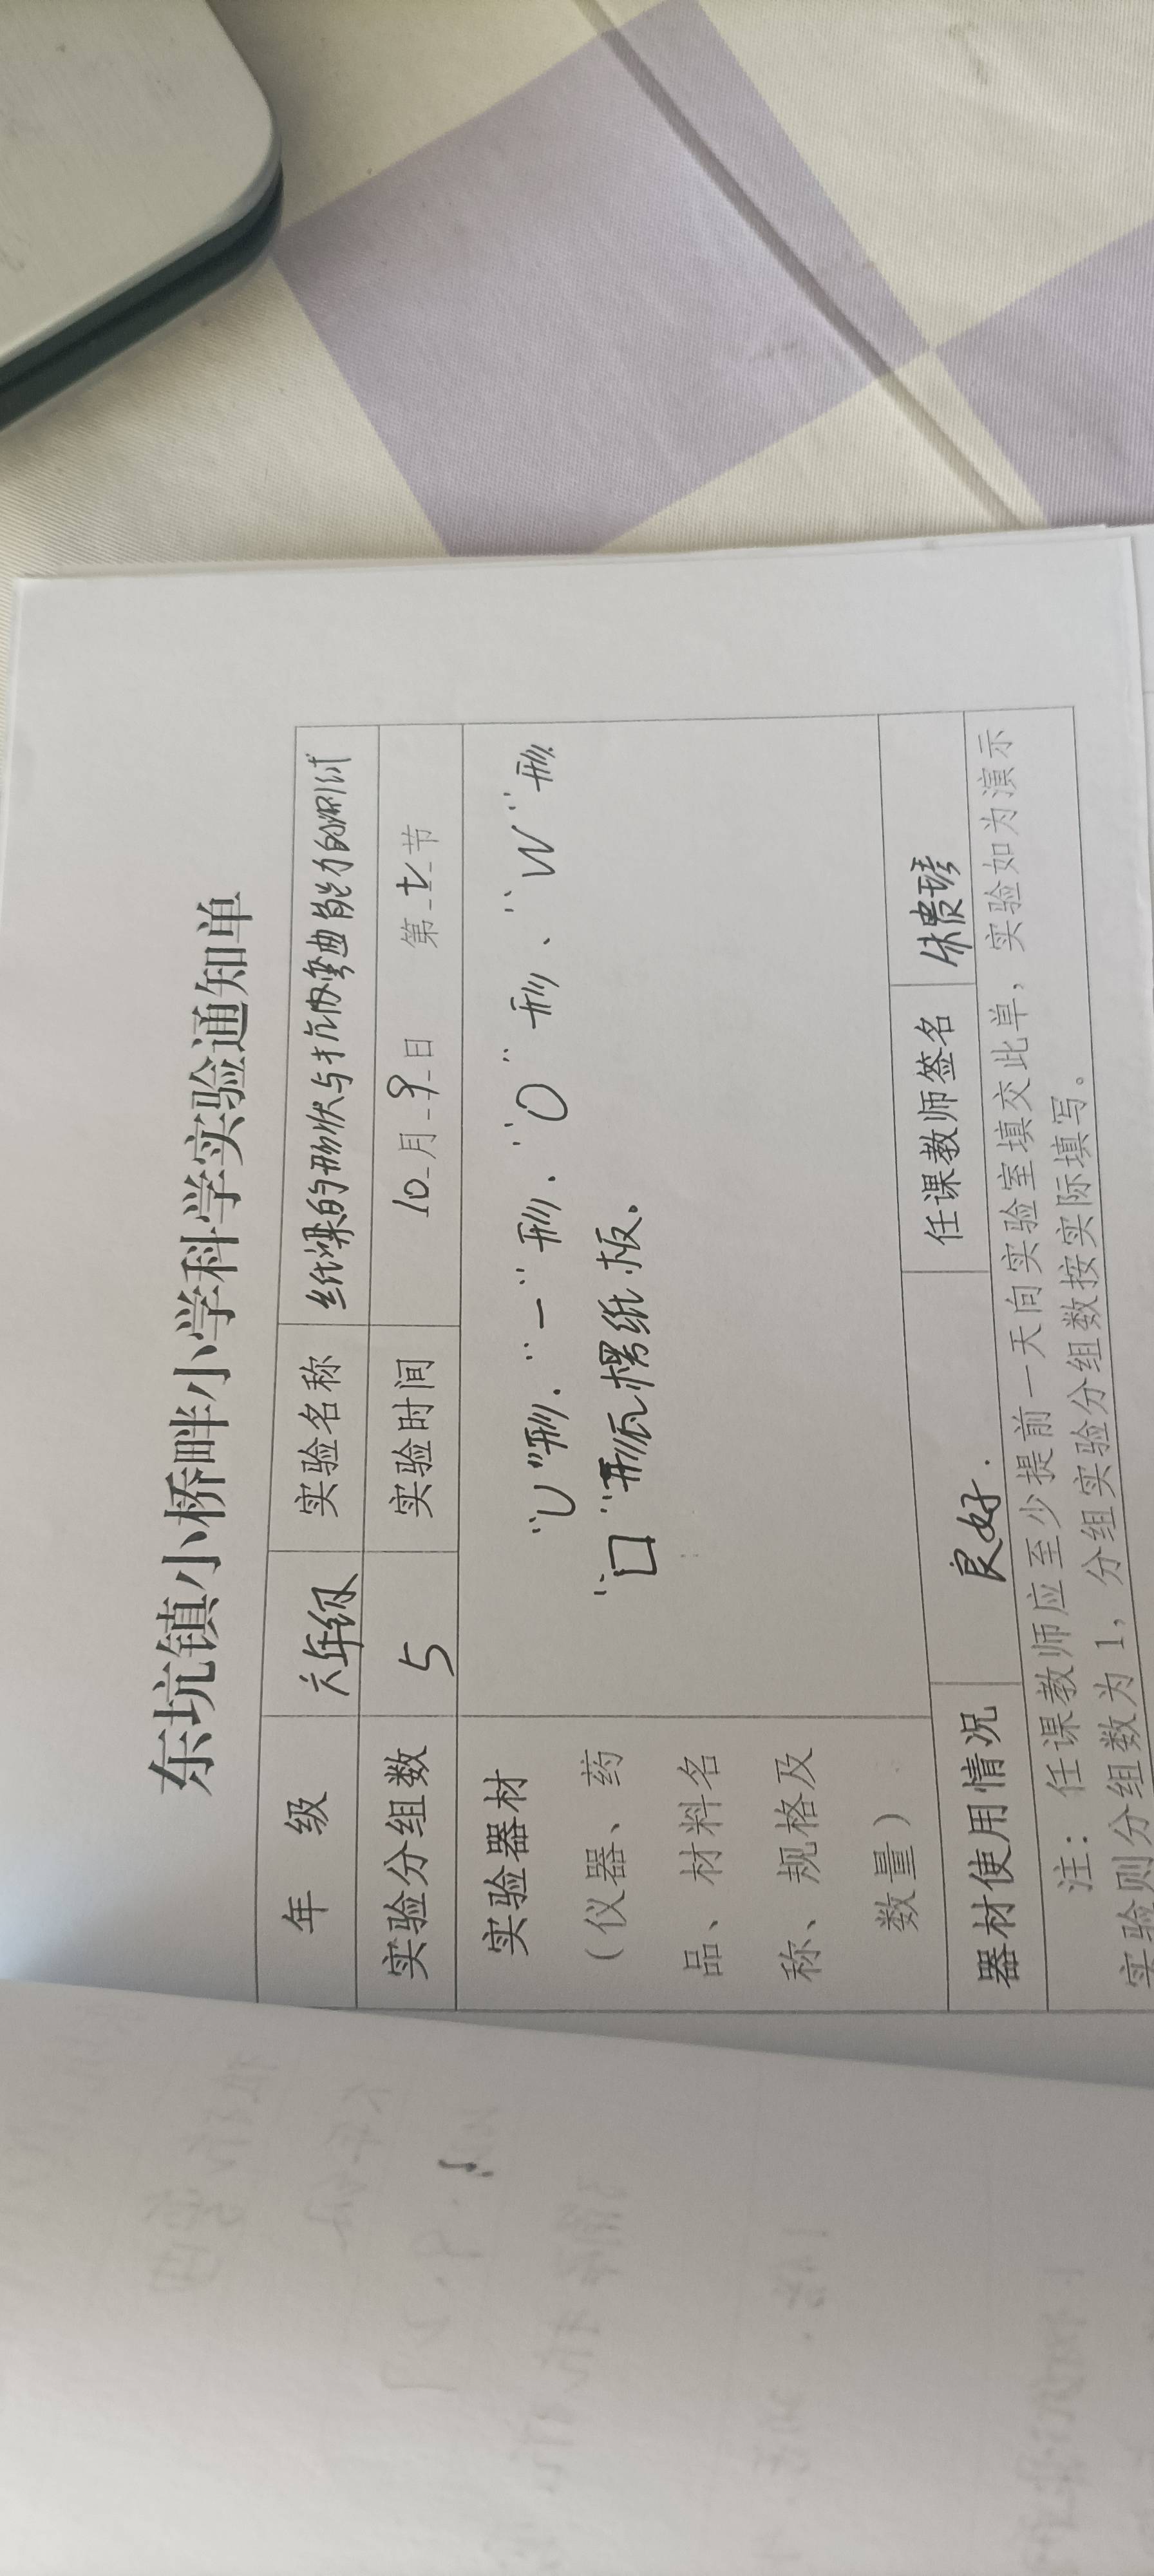 东坑镇小桥畔小学科学实验通知单
年 级 六年级 实验名称 纸梁的形状与抗弯曲能力的测试
实验分组数 5 实验时间 10月9日 第七节
实验器材
(仪器、药
品、材料名
称、规格及
数量)
“U”形、“一”形、“O”形、“W”形
“口”形瓦楞纸板。
器材使用情况 良好. 任课教师签名
注：任课教师应至少提前一天向实验室填交此单，实验如为演示
实验则分组数为1，分组实验分组数按实际填写。